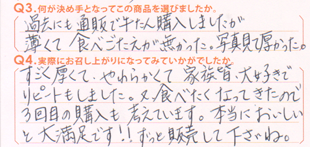 Q3.何が決め手となってこの商品を選びましたか。
過去にも通販で牛たん購入しましたが
薄くて食べごたえが無かった。写真見て厚かった。
Q4.実際にお召し上がりになってみていかがでしたか。
すごく厚くて、やわらかくて家族皆、大好きで
リピートもしました。又、食べたくなってきたので
3回目の購入も考えています。本当においしい
と大満足です!!ずっと販売して下さいね。